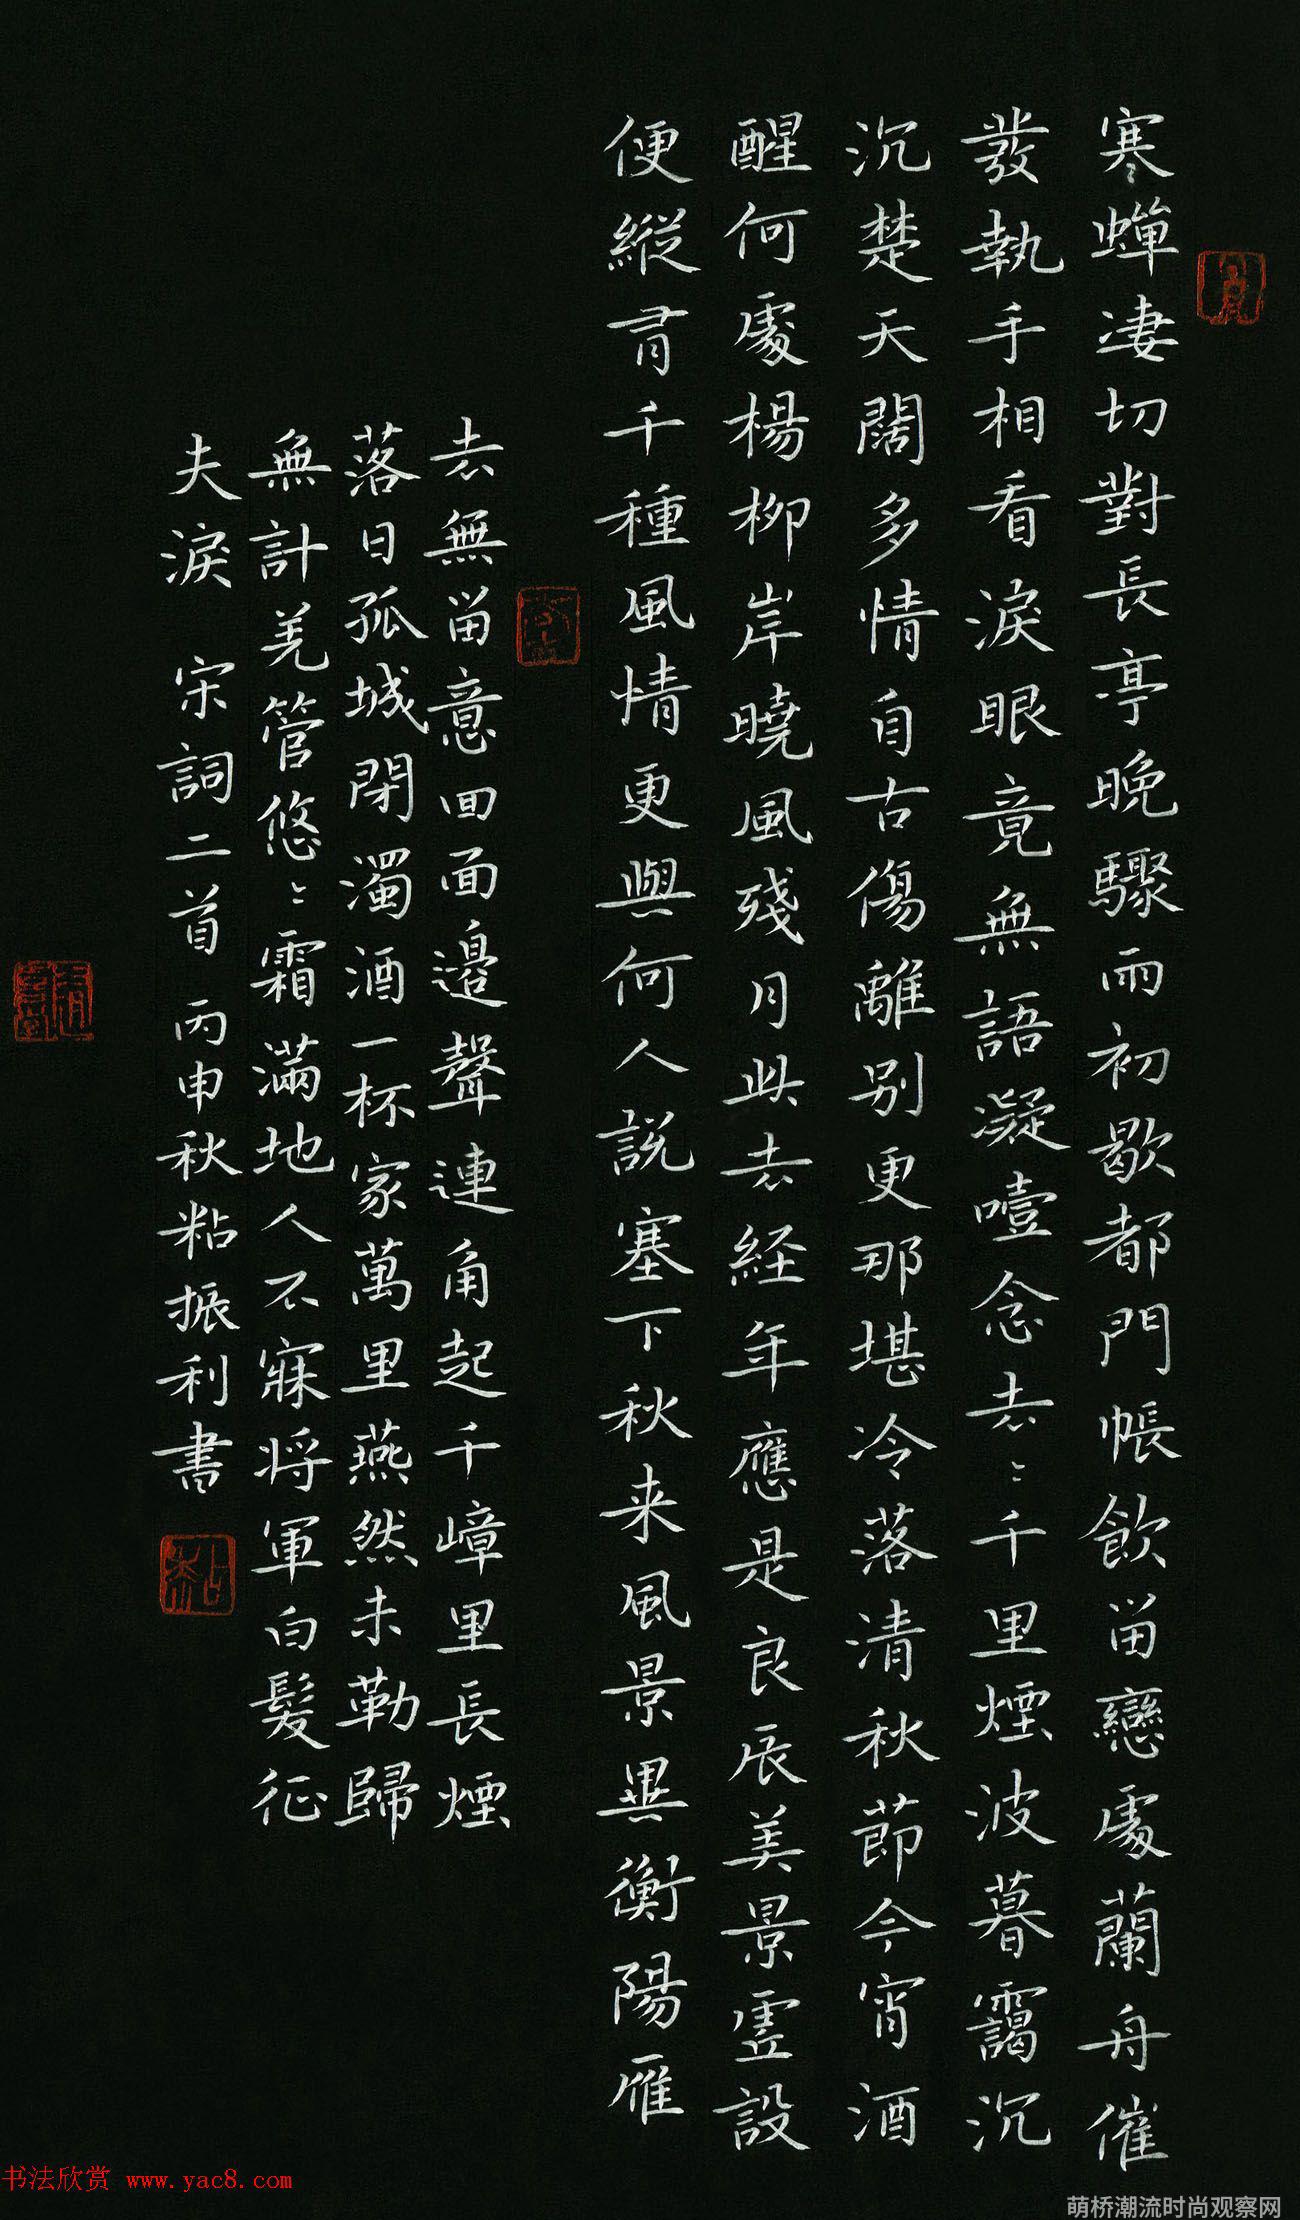 寒蟬淒切對長亭晚驟雨初歇都門帳飲畱戀處蘭舟催
發執手相看淚眼竟無語凝噎念去〻千里煙波暮靄沉
沉楚天闊多情自古傷離别更那堪冷落清秋節今宵酒
醒何處楊柳岸曉風殘月此去経年應是良辰美景虛設
便縱有千種風情更與何人説塞下秋来風景異衡陽雁
去無畱意四面邊聲連角起千嶂里長煙
落日孤城閉濁酒一杯家萬里燕然未勒歸
無計羌管悠〻霜滿地人不寐将軍白髮征
夫淚 宋詞二首 丙申秋粘振利書
书法欣赏 www.yac8.com
萌桥潮流时尚观察网